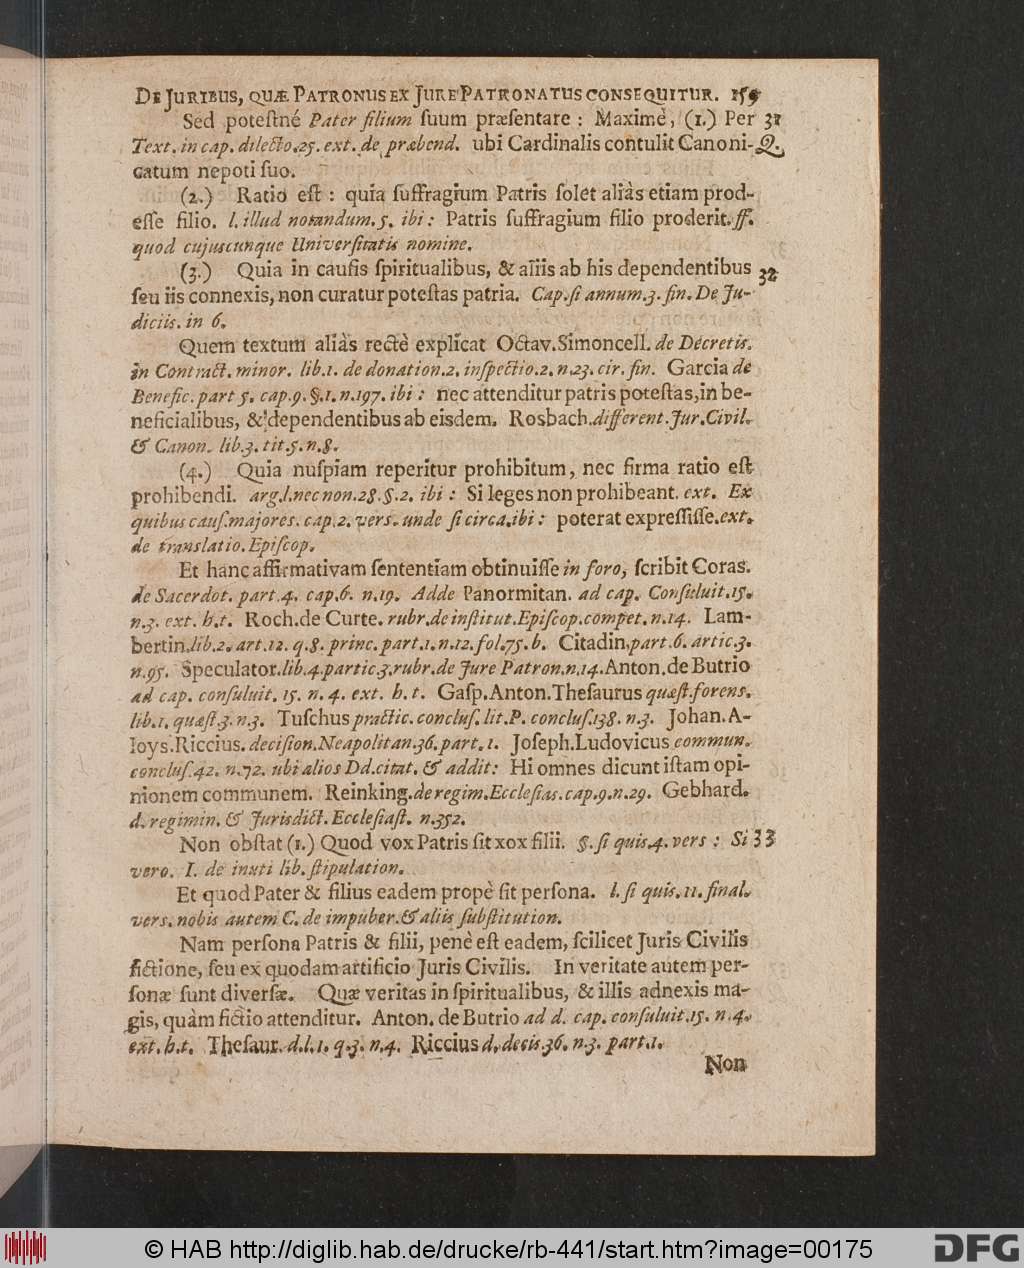 DE JURIBUS, QUÆ PATRONUS EX JURE PATRONATUS CONSEQUITUR. 159
Sed poteſtné Pater filium ſuum præſentare : Maximè, (1.) Per 31
Text. in cap. dilecto. 25. ext. de præbend. ubi Cardinalis contulit Canoni- Q.
catum nepoti ſuo.
(2.) Ratio eſt : quia ſuffragium Patris ſolet aliàs etiam prod-
eſſe filio. l. illud notandum. 5. ibi : Patris ſuffragium filio proderit. ff.
quod cujuscunque Univerſitatis nomine.
(3.) Quia in cauſis ſpiritualibus, & aliis ab his dependentibus 32
ſeu iis connexis, non curatur poteſtas patria. Cap. ſi annum. 3. fin. De Ju-
diciis. in 6.
Quem textum aliàs rectè explicat Octav. Simoncell. de Decretis.
in Contract. minor. lib. 1. de donation. 2. inſpectio. 2. n. 23. cir. fin. Garcia de
Benefic. part 5. cap. 9. §. 1. n. 197. ibi : nec attenditur patris poteſtas, in be-
neficialibus, & dependentibus ab eisdem. Rosbach. different. Jur. Civil.
& Canon. lib. 3. tit. 5. n. 8.
(4.) Quia nuſpiam reperitur prohibitum, nec firma ratio eſt
prohibendi. arg. l. nec non. 28. §. 2. ibi : Si leges non prohibeant. ext. Ex
quibus cauſ. majores. cap. 2. vers. unde ſi circa. ibi : poterat expreſſiſſe. ext.
de translatio. Epiſcop.
Et hanc affirmativam ſententiam obtinuiſſe in foro, ſcribit Coras.
de Sacerdot. part. 4. cap. 6. n. 19. Adde Panormitan. ad cap. Conſuluit. 15.
n. 3. ext. h. t. Roch. de Curte. rubr. de inſtitut. Epiſcop. compet. n. 14. Lam-
bertin. lib. 2. art. 12. q. 8. princ. part. 1. n. 12. fol. 75. b. Citadin. part. 6. artic. 3.
n. 95. Speculator. lib. 4. partic. 3. rubr. de Jure Patron. n. 14. Anton. de Butrio
ad cap. conſuluit. 15. n. 4. ext. h. t. Gaſp. Anton. Theſaurus quæſt. forens.
lib. 1. quæſt. 3. n. 3. Tuſchus practic. concluſ. lit. P. concluſ. 138. n. 3. Johan. A-
loys. Riccius. deciſion. Neapolitan. 36. part. 1. Joſeph. Ludovicus commun.
concluſ. 42. n. 72. ubi alios Dd. citat. & addit : Hi omnes dicunt iſtam opi-
nionem communem. Reinking. de regim. Eccleſias. cap. 9. n. 29. Gebhard.
d. regimin. & Jurisdict. Eccleſiaſt. n. 352.
Non obſtat (1.) Quod vox Patris ſit xox filii. §. ſi quis. 4. vers : Si 33
vero. I. de inuti lib. ſtipulation.
Et quod Pater & filius eadem propè ſit perſona. l. ſi quis. 11. final.
vers. nobis autem C. de impuber. & aliis ſubſtitution.
Nam perſona Patris & filii, penè eſt eadem, ſcilicet Juris Civilis
fictione, ſeu ex quodam artificio Juris Civilis. In veritate autem per-
ſonæ ſunt diverſæ. Quæ veritas in ſpiritualibus, & illis adnexis ma-
gis, quàm fictio attenditur. Anton. de Butrio ad d. cap. conſuluit. 15. n. 4.
ext. h. t. Theſaur. d. l. 1. q. 3. n. 4. Riccius d. decis. 36. n. 3. part. 1.
Non
© HAB http://diglib.hab.de/drucke/rb-441/start.htm?image=00175
DFG